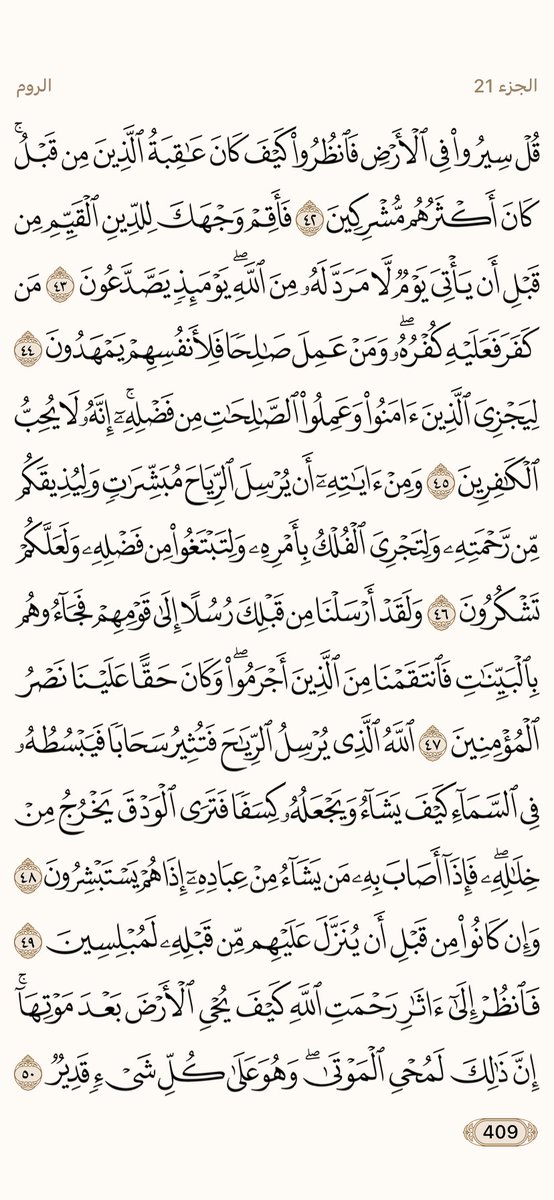 الجزء 21 الروم
قُلْ سِيرُوا۟ فِى ٱلْأَرْضِ فَٱنظُرُوا۟ كَيْفَ كَانَ عَـٰقِبَةُ ٱلَّذِينَ مِن قَبْلُ ۚ
كَانَ أَكْثَرُهُم مُّشْرِكِينَ ٤٢ فَأَقِمْ وَجْهَكَ لِلدِّينِ ٱلْقَيِّمِ مِن
قَبْلِ أَن يَأْتِىَ يَوْمٌ لَّا مَرَدَّ لَهُۥ مِنَ ٱللَّهِ ۖ يَوْمَئِذٍ يَصَّدَّعُونَ ٤٣ مَن
كَفَرَ فَعَلَيْهِ كُفْرُهُۥ ۖ وَمَنْ عَمِلَ صَـٰلِحًا فَلِأَنفُسِهِمْ يَمْهَدُونَ ٤٤
لِيَجْزِىَ ٱلَّذِينَ ءَامَنُوا۟ وَعَمِلُوا۟ ٱلصَّـٰلِحَـٰتِ مِن فَضْلِهِۦٓ ۚ إِنَّهُۥ لَا يُحِبُّ
ٱلْكَـٰفِرِينَ ٤٥ وَمِنْ ءَايَـٰتِهِۦٓ أَن يُرْسِلَ ٱلرِّيَاحَ مُبَشِّرَٰتٍ وَلِيُذِيقَكُم
مِّن رَّحْمَتِهِۦ وَلِتَجْرِىَ ٱلْفُلْكُ بِأَمْرِهِۦ وَلِتَبْتَغُوا۟ مِن فَضْلِهِۦ وَلَعَلَّكُمْ
تَشْكُرُونَ ٤٦ وَلَقَدْ أَرْسَلْنَا مِن قَبْلِكَ رُسُلًا إِلَىٰ قَوْمِهِمْ فَجَآءُوهُم
بِٱلْبَيِّنَـٰتِ فَٱنتَقَمْنَا مِنَ ٱلَّذِينَ أَجْرَمُوا۟ ۖ وَكَانَ حَقًّا عَلَيْنَا نَصْرُ
ٱلْمُؤْمِنِينَ ٤٧ ٱللَّهُ ٱلَّذِى يُرْسِلُ ٱلرِّيَـٰحَ فَتُثِيرُ سَحَابًا فَيَبْسُطُهُۥ
فِى ٱلسَّمَآءِ كَيْفَ يَشَآءُ وَيَجْعَلُهُۥ كِسَفًا فَتَرَى ٱلْوَدْقَ يَخْرُجُ مِنْ
خِلَـٰلِهِۦ ۖ فَإِذَآ أَصَابَ بِهِۦ مَن يَشَآءُ مِنْ عِبَادِهِۦٓ إِذَا هُمْ يَسْتَبْشِرُونَ ٤٨
وَإِن كَانُوا۟ مِن قَبْلِ أَن يُنَزَّلَ عَلَيْهِم مِّن قَبْلِهِۦ لَمُبْلِسِينَ ٤٩
فَٱنظُرْ إِلَىٰٓ ءَاثَـٰرِ رَحْمَتِ ٱللَّهِ كَيْفَ يُحْىِ ٱلْأَرْضَ بَعْدَ مَوْتِهَآ ۚ
إِنَّ ذَٰلِكَ لَمُحْىِ ٱلْمَوْتَىٰ ۖ وَهُوَ عَلَىٰ كُلِّ شَىْءٍ قَدِيرٌ ٥٠
409